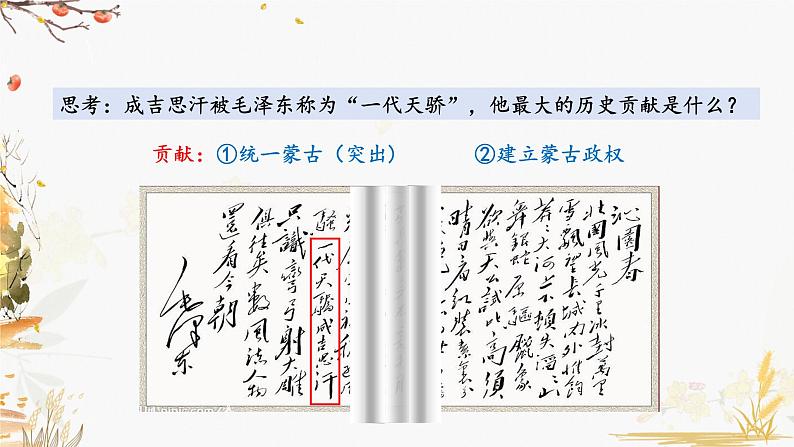 思考：成吉思汗被毛泽东称为“一代天骄”，他最大的历史贡献是什么？
贡献：①统一蒙古（突出） ②建立蒙古政权
沁園春
北國風光千里冰封萬里
雪飄望長城内外惟餘
莽莽大河上下頓失滔滔山
舞銀蛇原驅蠟象
欲與天公試比高須
晴日看紅裝素裹
騷一代天驕成吉思汗
只識彎弓射大雕
俱往矣數風流人物
還看今朝
毛澤東